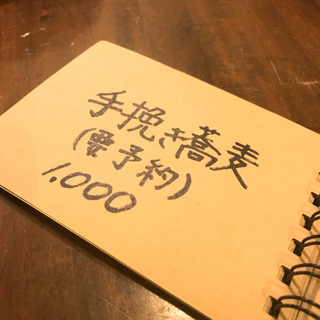 手挽き蕎麦
(要予約)
1,000